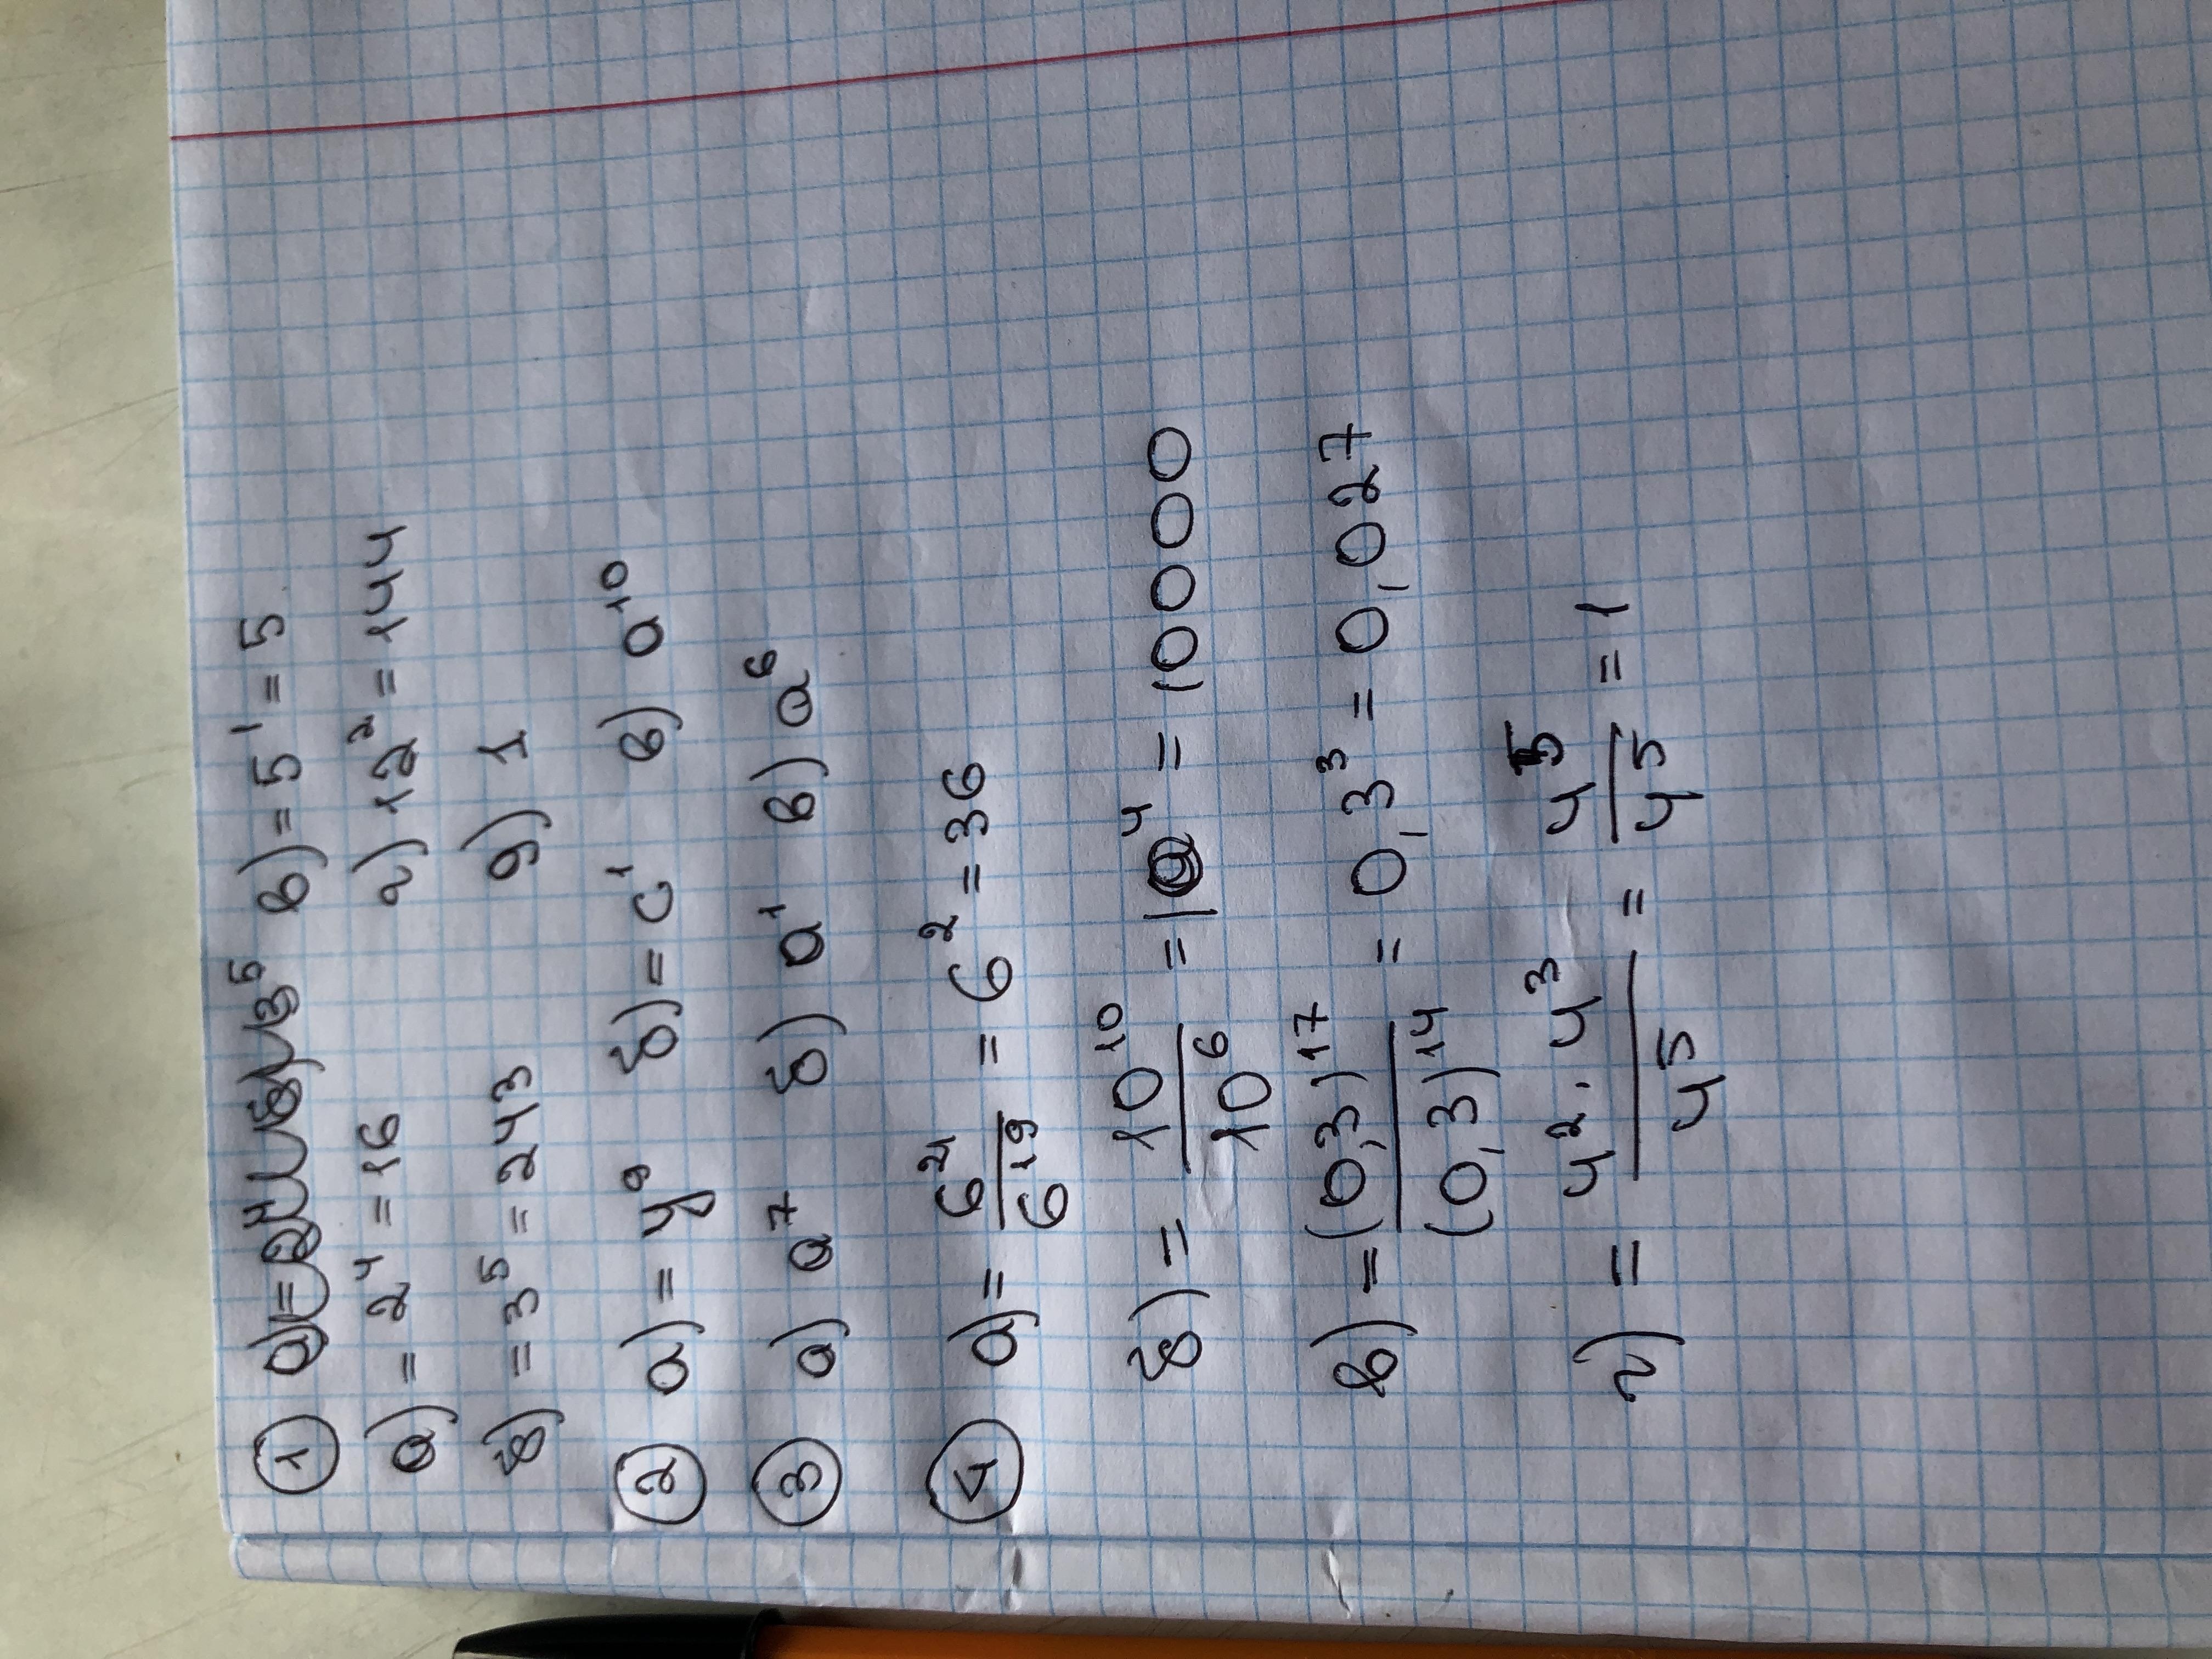 ① в) = 5¹ = 5
а) = 2⁴ = 16 г) 12² = 144
б) = 3⁵ = 243 д) 1
② а) = y⁹ б) = c¹ в) a¹⁰
③ а) a⁷ б) a¹ в) a⁶
④ а) = 6²¹/6¹⁹ = 6² = 36
б) = 10¹⁰/10⁶ = 10⁴ = 10000
в) = (0,3)¹⁷/(0,3)¹⁴ = 0,3³ = 0,027
г) = 4² · 4³/4⁵ = 4⁵/4⁵ = 1